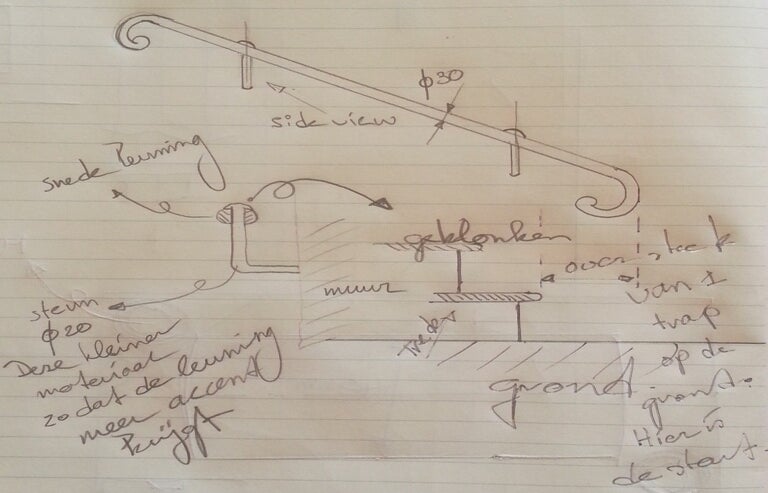 φ30
side view
snede leuning
geklonken
oversteek
van 1
trap
op de
grond.
Hier is
de start.
muur
trede
grond
steun
φ20
Deze kleiner
materiaal
zodat de leuning
meer accent
krijgt